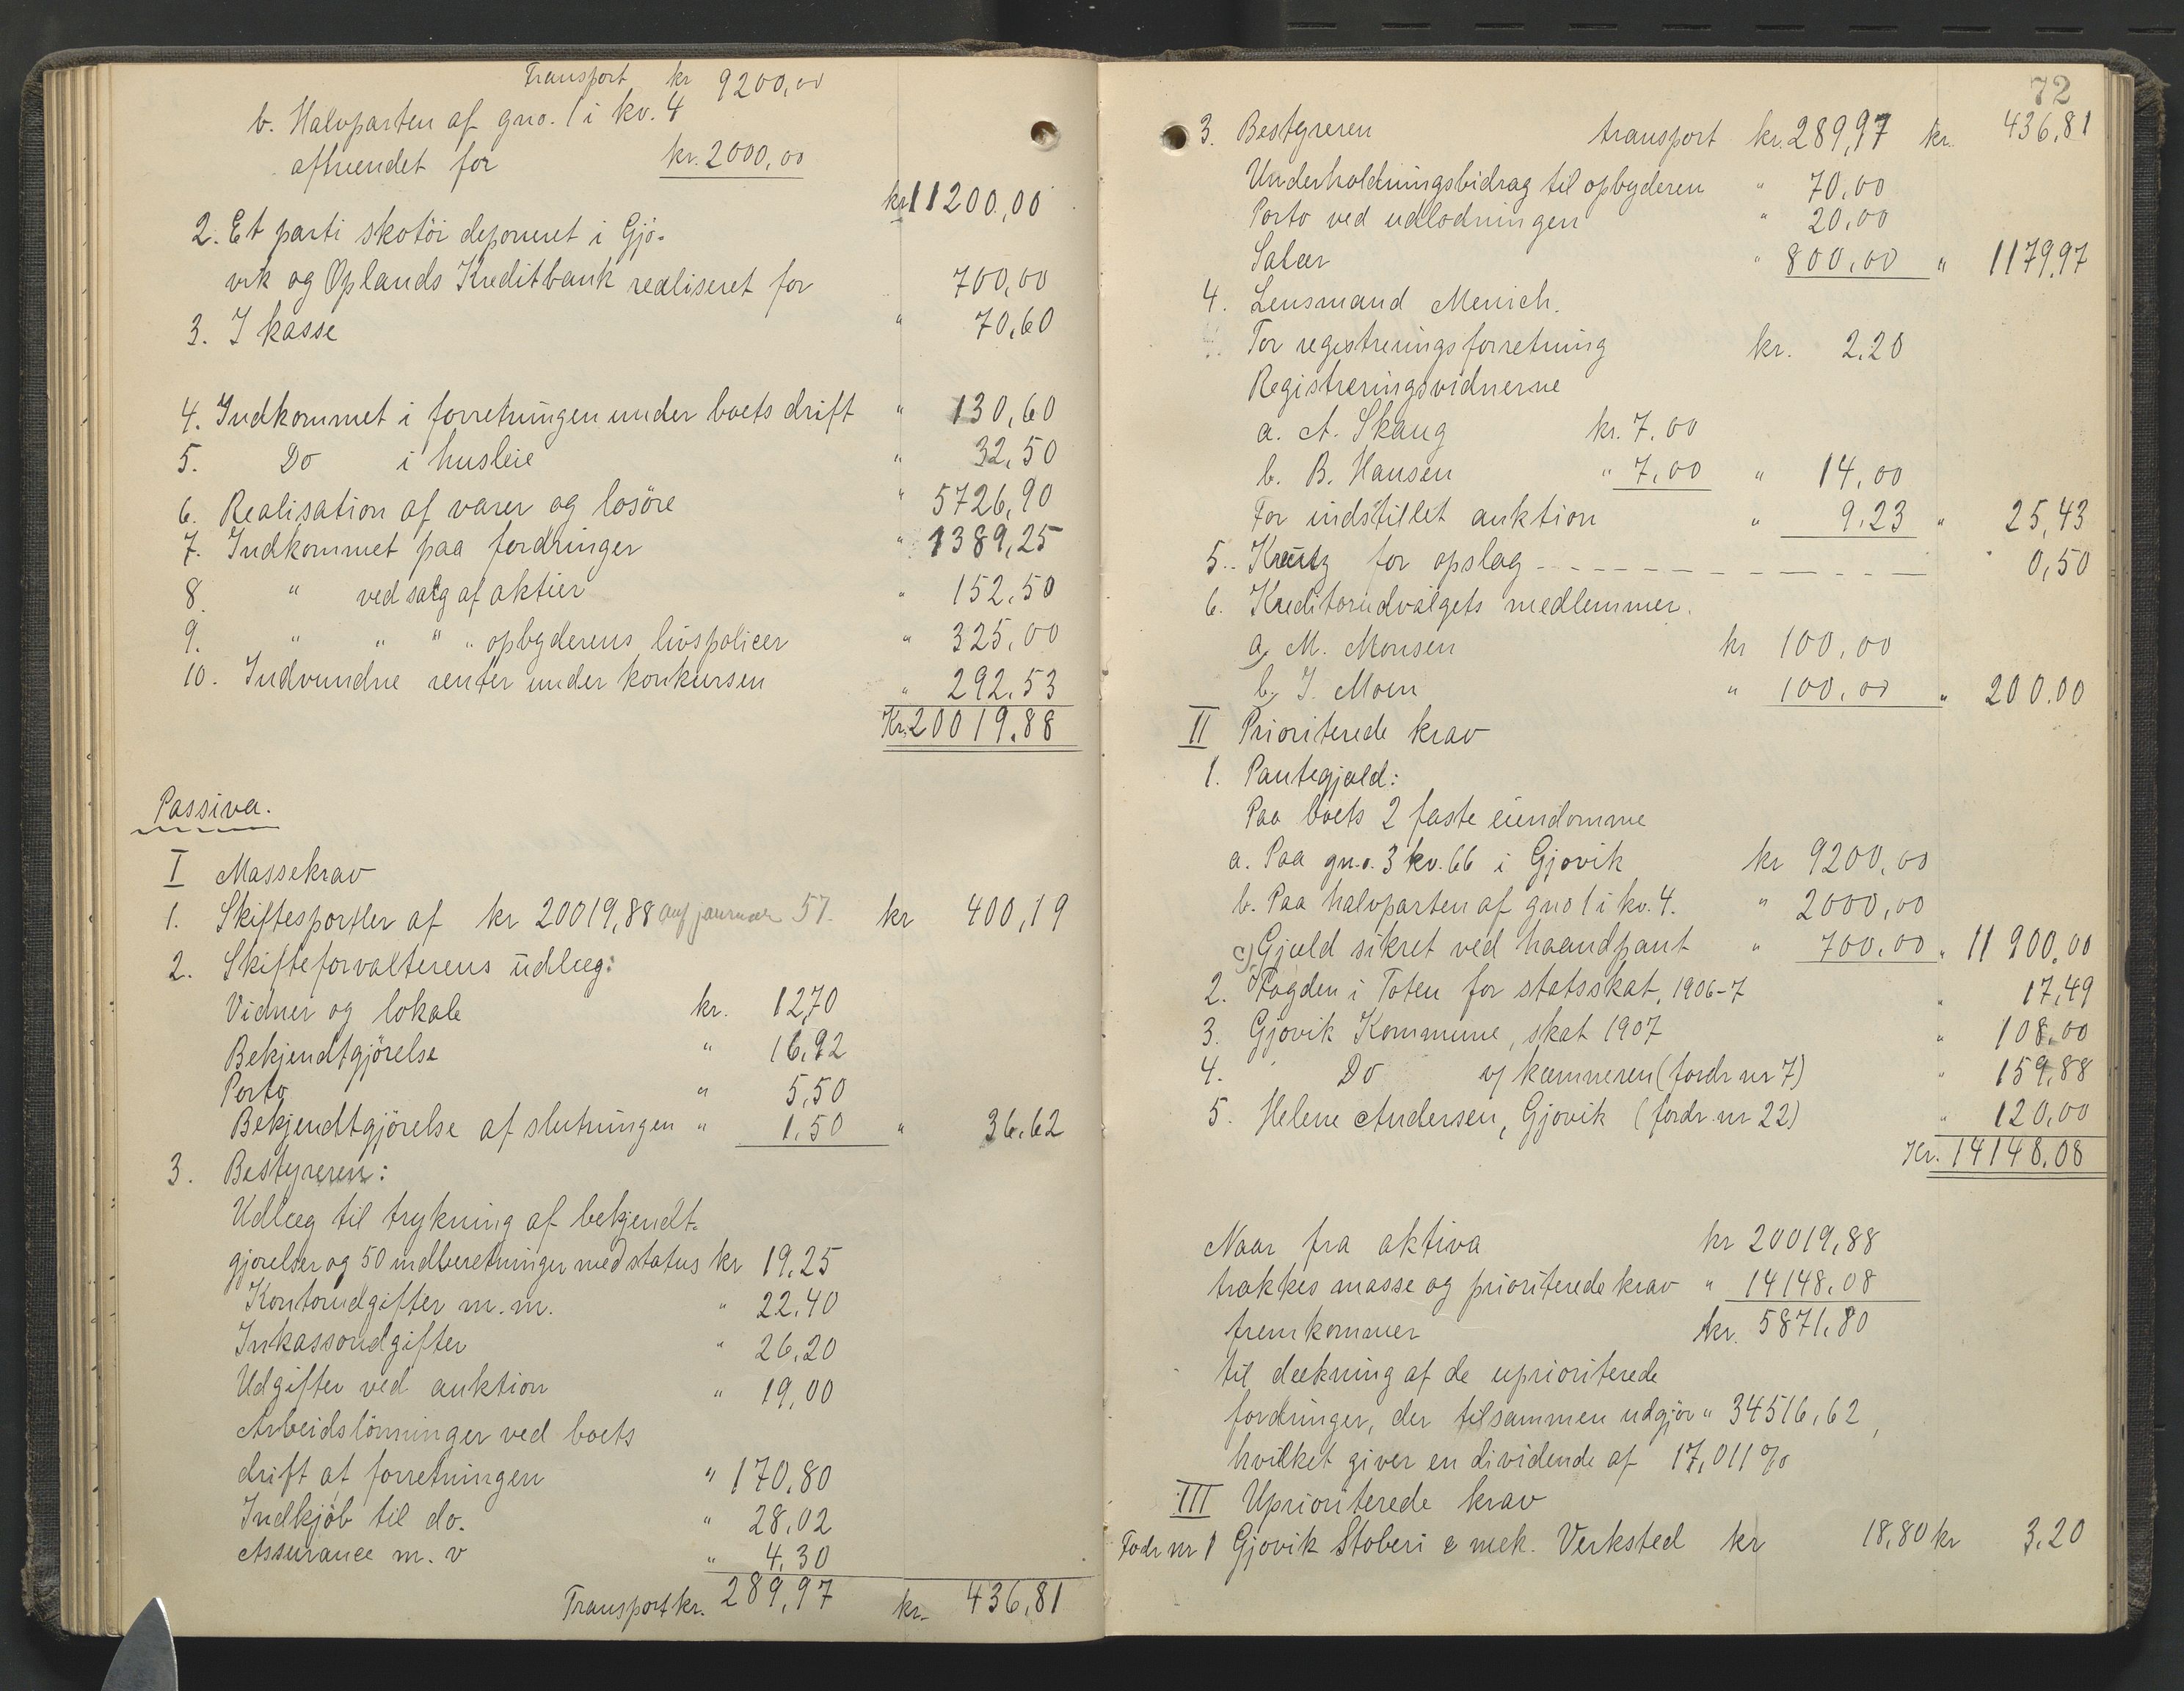 Transport kr 9200,00
b. Halvparten af gno. 1 i kv. 4
afhændet for kr. 2000,00
kr 11200,00
2. Et parti skotöi deponeret i Gjö-
vik og Oplands Kreditbank realiseret for 700,00
3. I kasse " 70,60
4. Indkommet i forretningen under boets drift " 130,60
5. Do i husleie " 32,50
6. Realisation af varer og losöre " 5726,90
7. Indkommet paa fordringer " 1389,25
8. " ved salg af aktier " 152,50
9. " " " " opbyderens livspolicer " 325,00
10. Indvundne renter under konkursen " 292,53
Kr. 20019.88
Passiva.
I Massekrav
1. Skiftesportler af kr 20019,88 57. kr 400,19
2. Skifteforvalterens udlæg:
Vidner og lokale kr. 12,70
Bekjendtgjörelse " 16,92
Porto " 5,50
Bekjendtgjörelse af slutningen " 1,50 " 36,62
3. Bestyreren:
Udlæg til trykning af bekjendt-
gjorelser og 50 indberetninger med status kr 19,25
Kontorudgifter m.m. " 22,40
Inkassoudgifter " 26,20
Udgifter ved auktion " 19,00
Arbeidslönninger ved boets
drift af forretningen " 170,80
Indkjöb til do. " 28,02
Assurance m. v " 4,30
Transport kr. 289,97 kr. 436,81
72
3. Bestyreren transport kr. 289,97 kr. 436,81
Underholdningsbidrag til opbyderen " 70,00
Porto ved udlodningen " 20,00
Salær " 800,00 " 1179,97
4. Lensmand Menich.
For registreringsforretning kr. 2,20
Registreringsvidnerne
a. A. Skaug kr. 7,00
b. B. Hansen " 7,00 " 14,00
For indstillet auktion " 9,23 " 25,43
5. for opslag " 0,50
6. Kreditorudvalgets medlemmer.
a, M. Monsen kr 100,00
b, J. Moen " 100,00 " 200.00
II Prioriterede krav
1. Pantegjæld:
Paa boets 2 faste eiendomme
a. Paa gno. 3 kv. 66 i Gjovik kr 9200,00
b. Paa halvparten af gno 1 i kv. 4. " 2000,00
c, Gjæld sikret ved haandpant " 700,00 " 11 900,00
2. Fogden i Toten for statsskat, 1906-7 " 17,49
3. Gjövik Kommune, skat 1907 " 108,00
4. Do v/ kæmneren (fordr nr 7) " 159,88
5. Helene Andersen, Gjovik (fordr. nr 22) " 120,00
Kr. 14148.08
Naar fra aktiva kr 20019,88
trækkes masse og prioriterede krav " 14148.08
fremkommer kr. 5871,80
til dækning af de uprioriterede
fordringer, der tilsammen udgjör " 34516,62,
hvilket giver en dividende af 17,011%
III Uprioriterede krav
Fodr nr 1 Gjovik Stoberi & mek. Verksted kr 18,80 kr 3,20